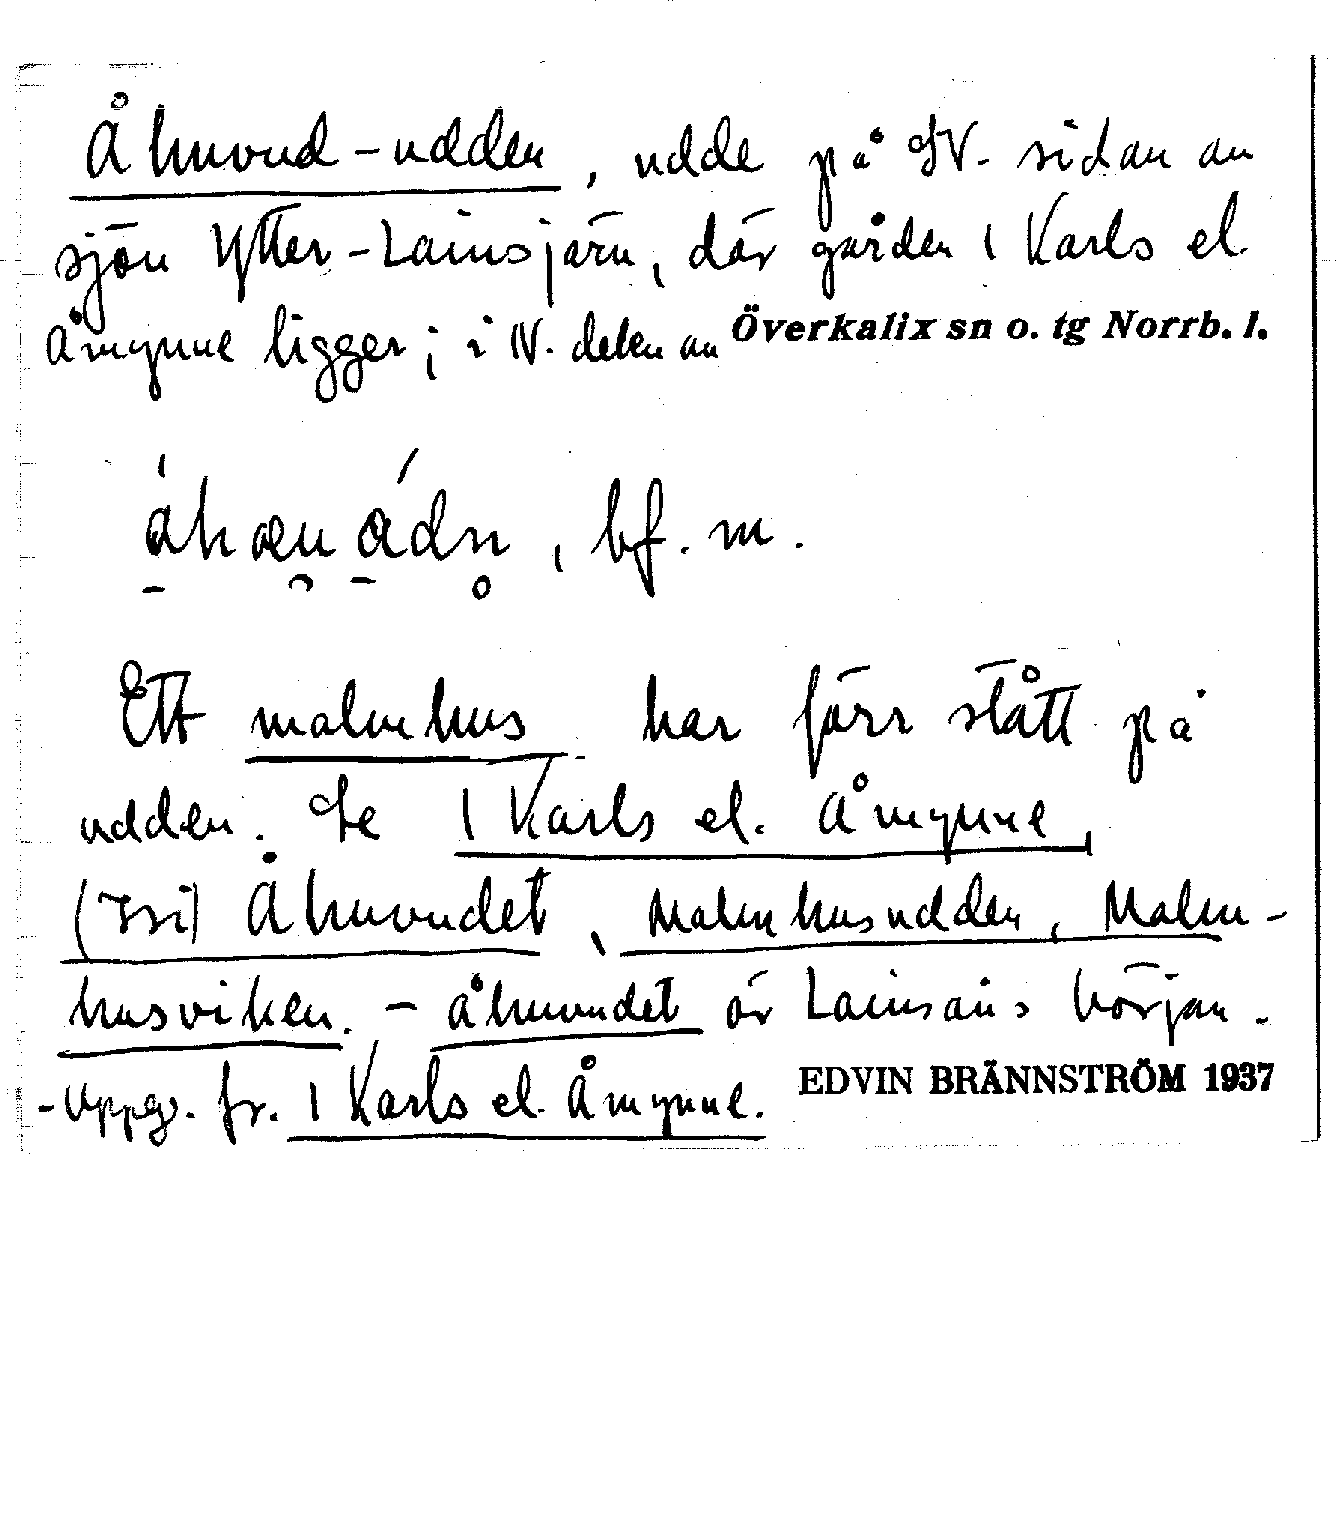 Åhuvud-udden, udde på SV. sidan av
sjön Ytter-Lainsjärv, där gården 1 Karls el.
Åmynne ligger; i N. delen av Överkalix sn o. tg Norrb. l.
bf. m.
Ett malmhus har förr stått på
udden. Se 1 Karls el. Åmynne,
Åhuvudet, Malmhusudden, Malm-
husviken. - Åhuvudet är Lainsåns början.
- Uppg. fr. 1 Karls el. Åmynne. EDVIN BRÄNNSTRÖM 1937